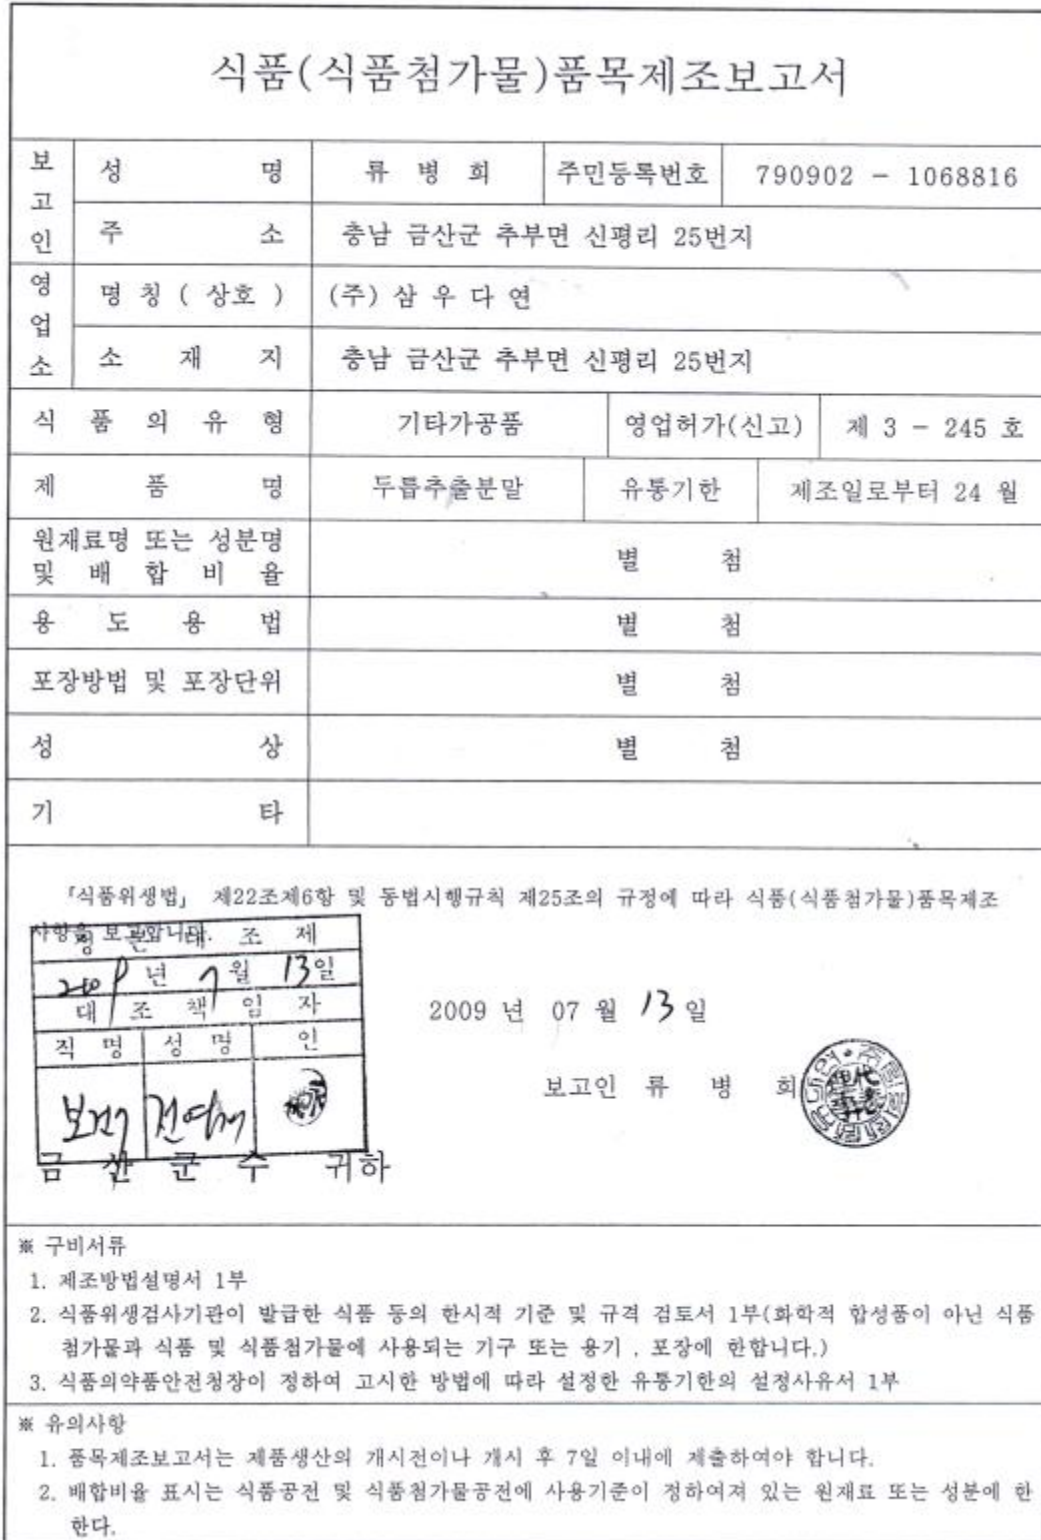 식품(식품첨가물)품목제조보고서
보고인
성 명 류 병 희 주민등록번호 790902 - 1068816
주 소 충남 금산군 추부면 신평리 25번지
영업소
명 칭 ( 상호 ) (주) 삼 우 다 연
소 재 지 충남 금산군 추부면 신평리 25번지
식 품 의 유 형 기타가공품 영업허가(신고) 제 3 - 245 호
제 품 명 두릅추출분말 유통기한 제조일로부터 24 월
원재료명 또는 성분명
및 배 합 비 율 별 첨
용 도 용 법 별 첨
포장방법 및 포장단위 별 첨
성 상 별 첨
기 타
「식품위생법」 제22조제6항 및 동법시행규칙 제25조의 규정에 따라 식품(식품첨가물)품목제조
사항을 보고합니다.
대 조 제
2009 년 7 월 13일
대 조 책 임 자
직 명 성 명 인
2009 년 07 월 13 일
보고인 류 병 희
금 산 군 수 귀하
※ 구비서류
1. 제조방법설명서 1부
2. 식품위생검사기관이 발급한 식품 등의 한시적 기준 및 규격 검토서 1부(화학적 합성품이 아닌 식품
첨가물과 식품 및 식품첨가물에 사용되는 기구 또는 용기 . 포장에 한합니다.)
3. 식품의약품안전청장이 정하여 고시한 방법에 따라 설정한 유통기한의 설정사유서 1부
※ 유의사항
1. 품목제조보고서는 제품생산의 개시전이나 개시 후 7일 이내에 제출하여야 합니다.
2. 배합비율 표시는 식품공전 및 식품첨가물공전에 사용기준이 정하여져 있는 원재료 또는 성분에 한
한다.